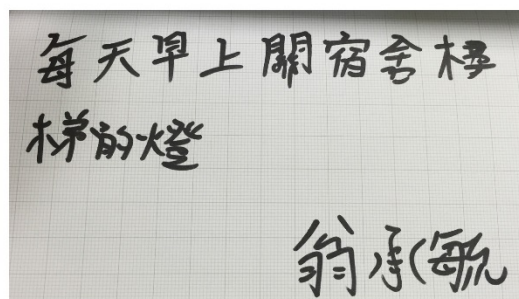 每天早上關宿舍樓
梯的燈
翁承毓